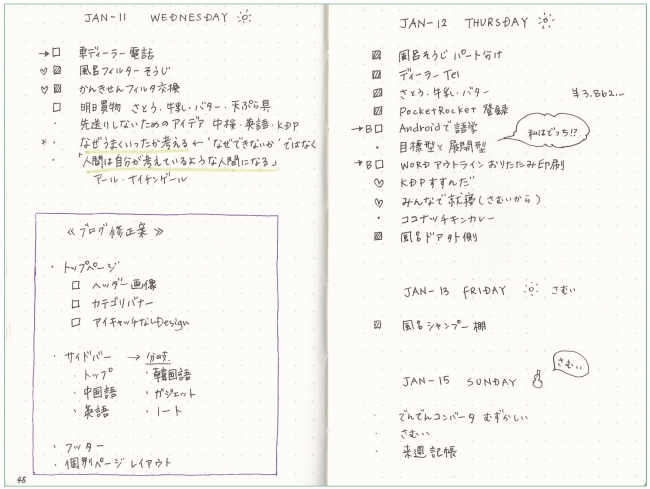 JAN-11 WEDNESDAY
→□ 車ディーラー電話
♡☑ 風呂フィルターそうじ
♡☑ かんきせんフィルタ交換
□ 明日買物 さとう・牛乳・バター・天ぷら具
・ 先送りしないためのアイデア 中検・英語・KDP
*・ なぜうまくいったか考える ← 「なぜできないか」ではなく
・ 「人間は自分が考えているような人間になる」
アール・ナイチンゲール
《ブログ修正案》
・トップページ
□ ヘッダー画像
□ カテゴリバナー
□ アイキャッチなしDesign
・サイドバー → 分ける.
・トップ ・韓国語
・中国語 ・ガジェット
・英語 ・ノート
・フッター
・個別ページ レイアウト
46
JAN-12 THURSDAY
☑ 風呂そうじ パート分け
☑ ディーラー Tel
☑ さとう、牛乳、バター ¥3.862.-
☑ PocketRocket 登録
→B□ Androidで語学
・ 目標型と展開型
私はどっち!?
→B□ WORD アウトライン おりたたみ印刷
♡ KDPすすんだ
♡ みんなで就寝(さむいから)
・ ココナッツチキンカレー
☑ 風呂ドア外側
JAN-13 FRIDAY さむい
☑ 風呂シャンプー棚
JAN-15 SUNDAY
さむい
・ でんでんコンバータ むずかしい
・ さむい
・ 来週記帳